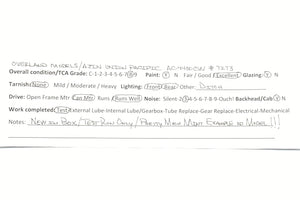 OVERLAND MODELS/AJIN UNION PACIFIC # 7273
Overall condition/TCA Grade: C-1-2-3-4-5-6-7-8-9 Paint: Y N Fair / Good / Excellent Glazing: Y N
Tarnish: None Mild / Moderate / Heavy Lighting: Front/Rear Other: Ditch
Drive: Open Frame Mtr Can Mtr Runs Runs Well Noise: Silent-2-3-4-5-6-7-8-9-Ouch! Backhead/Cab Y N
Work completed: Test External Lube-Internal Lube/Gearbox-Tube Replace-Gear Replace-Electrical-Mechanical
Notes: New in Box / Test Run Only / Pretty Much Mint Example of Model!!!